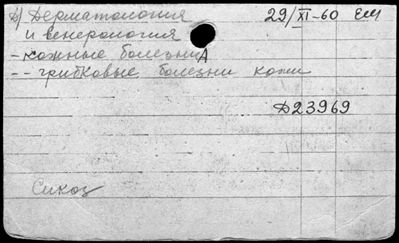 в) Дерматология 29/XI-60 ЕМ
и венерология
- кожные болезни А
-- грибковые болезни кожи
Д23969
Сикоз